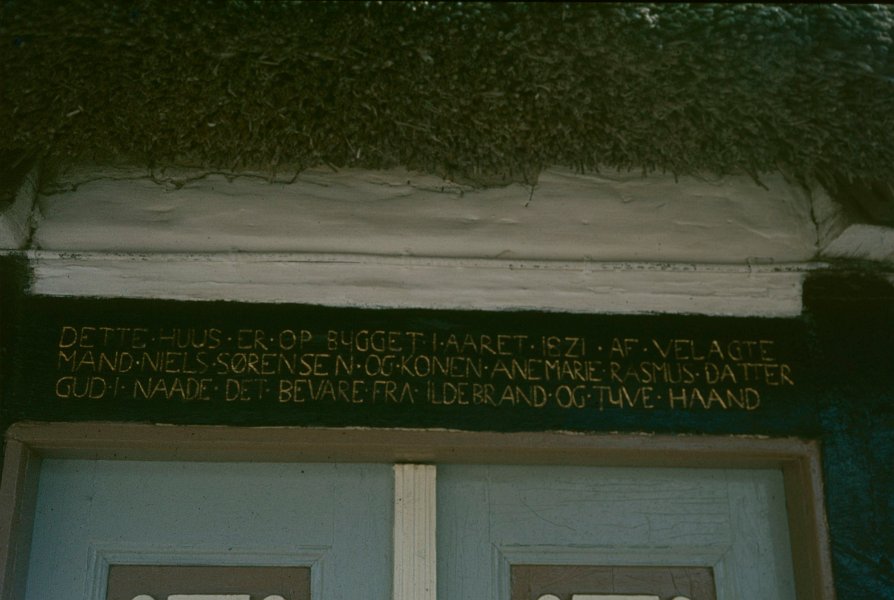 DETTE · HUUS · ER · OP BYGGET · I · AARET · 1821 · AF · VELAGTE
MAND · NIELS · SØRENSEN · OG · KONEN · ANE MARIE RASMUS · DATTER
GUD · I · NAADE · DET · BEVARE · FRA · ILDEBRAND · OG · TYVE · HAAND